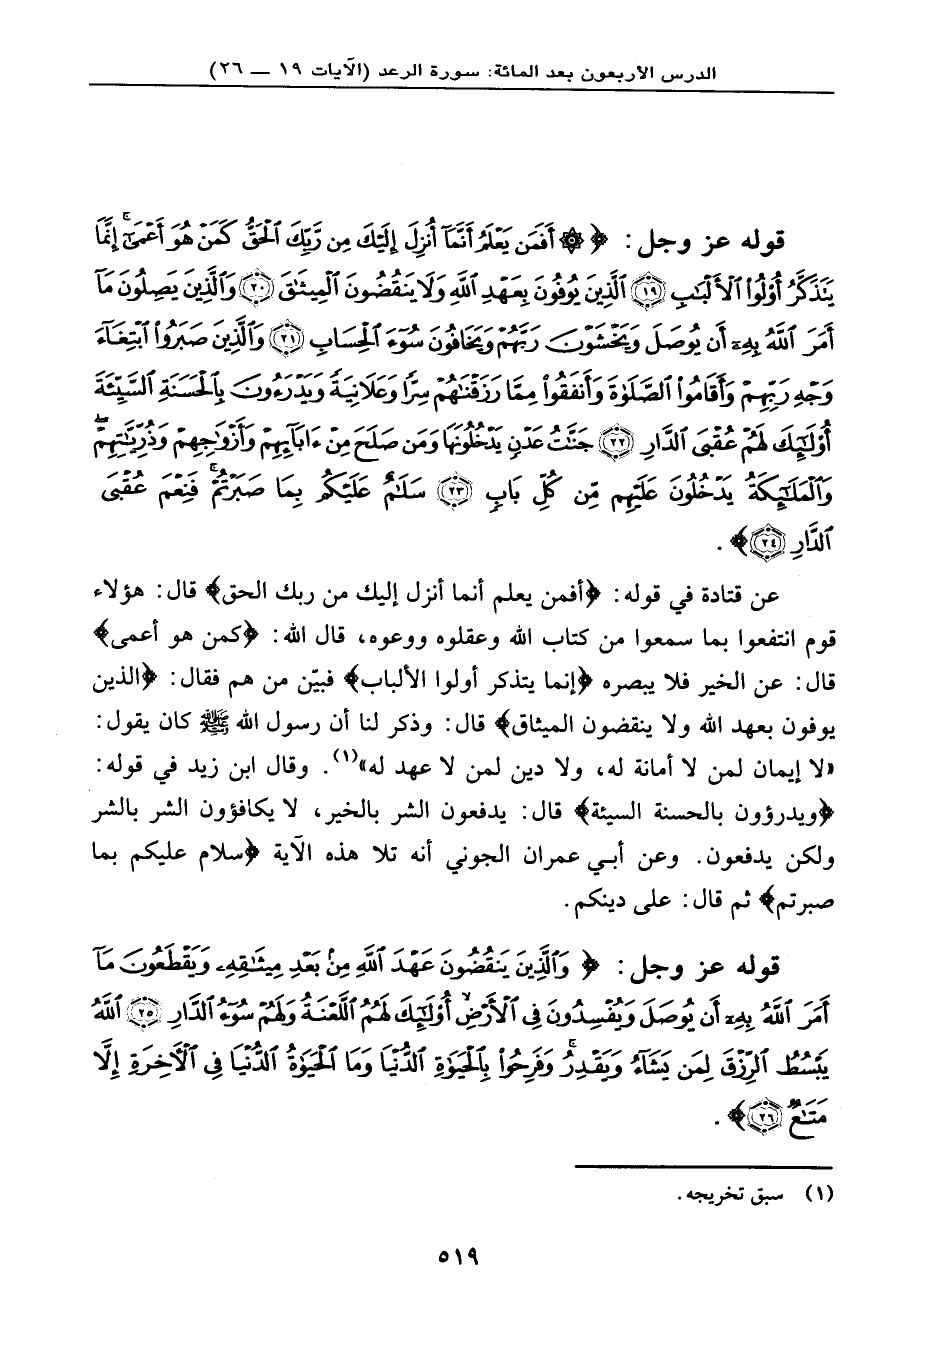 الدرس الأربعون بعد المائة: سورة الرعد (الآيات ١٩ ـــ ٢٦)
قوله عز وجل: ﴿ ۞ أَفَمَن يَعْلَمُ أَنَّمَآ أُنزِلَ إِلَيْكَ مِن رَّبِّكَ ٱلْحَقُّ كَمَنْ هُوَ أَعْمَىٰٓ ۚ إِنَّمَا
يَتَذَكَّرُ أُو۟لُوا۟ ٱلْأَلْبَـٰبِ ١٩ ٱلَّذِينَ يُوفُونَ بِعَهْدِ ٱللَّهِ وَلَا يَنقُضُونَ ٱلْمِيثَـٰقَ ٢٠ وَٱلَّذِينَ يَصِلُونَ مَآ
أَمَرَ ٱللَّهُ بِهِۦٓ أَن يُوصَلَ وَيَخْشَوْنَ رَبَّهُمْ وَيَخَافُونَ سُوٓءَ ٱلْحِسَابِ ٢١ وَٱلَّذِينَ صَبَرُوا۟ ٱبْتِغَآءَ
وَجْهِ رَبِّهِمْ وَأَقَامُوا۟ ٱلصَّلَوٰةَ وَأَنفَقُوا۟ مِمَّا رَزَقْنَـٰهُمْ سِرًّا وَعَلَانِيَةً وَيَدْرَءُونَ بِٱلْحَسَنَةِ ٱلسَّيِّئَةَ
أُو۟لَـٰٓئِكَ لَهُمْ عُقْبَى ٱلدَّارِ ٢٢ جَنَّـٰتُ عَدْنٍ يَدْخُلُونَهَا وَمَن صَلَحَ مِنْ ءَابَآئِهِمْ وَأَزْوَٰجِهِمْ وَذُرِّيَّـٰتِهِمْ ۖ
وَٱلْمَلَـٰٓئِكَةُ يَدْخُلُونَ عَلَيْهِم مِّن كُلِّ بَابٍ ٢٣ سَلَـٰمٌ عَلَيْكُم بِمَا صَبَرْتُمْ ۚ فَنِعْمَ عُقْبَى
ٱلدَّارِ ٢٤ ﴾ .
عن قتادة في قوله: ﴿أفمن يعلم أنما أنزل إليك من ربك الحق﴾ قال: هؤلاء
قوم انتفعوا بما سمعوا من كتاب الله وعقلوه ووعوه، قال الله: ﴿كمن هو أعمى﴾
قال: عن الخير فلا يبصره ﴿إنما يتذكر أولوا الألباب﴾ فبيّن من هم فقال: ﴿الذين
يوفون بعهد الله ولا ينقضون الميثاق﴾ قال: وذكر لنا أن رسول الله ﷺ كان يقول:
«لا إيمان لمن لا أمانة له، ولا دين لمن لا عهد له»(١). وقال ابن زيد في قوله:
﴿ويدرؤون بالحسنة السيئة﴾ قال: يدفعون الشر بالخير، لا يكافؤون الشر بالشر
ولكن يدفعون. وعن أبي عمران الجوني أنه تلا هذه الآية ﴿سلام عليكم بما
صبرتم﴾ ثم قال: على دينكم.
قوله عز وجل: ﴿ وَٱلَّذِينَ يَنقُضُونَ عَهْدَ ٱللَّهِ مِنۢ بَعْدِ مِيثَـٰقِهِۦ وَيَقْطَعُونَ مَآ
أَمَرَ ٱللَّهُ بِهِۦٓ أَن يُوصَلَ وَيُفْسِدُونَ فِى ٱلْأَرْضِ ۙ أُو۟لَـٰٓئِكَ لَهُمُ ٱللَّعْنَةُ وَلَهُمْ سُوٓءُ ٱلدَّارِ ٢٥ ٱللَّهُ
يَبْسُطُ ٱلرِّزْقَ لِمَن يَشَآءُ وَيَقْدِرُ ۚ وَفَرِحُوا۟ بِٱلْحَيَوٰةِ ٱلدُّنْيَا وَمَا ٱلْحَيَوٰةُ ٱلدُّنْيَا فِى ٱلْـَٔاخِرَةِ إِلَّا
مَتَـٰعٌ ٢٦ ﴾ .
(١) سبق تخريجه .
٥١٩